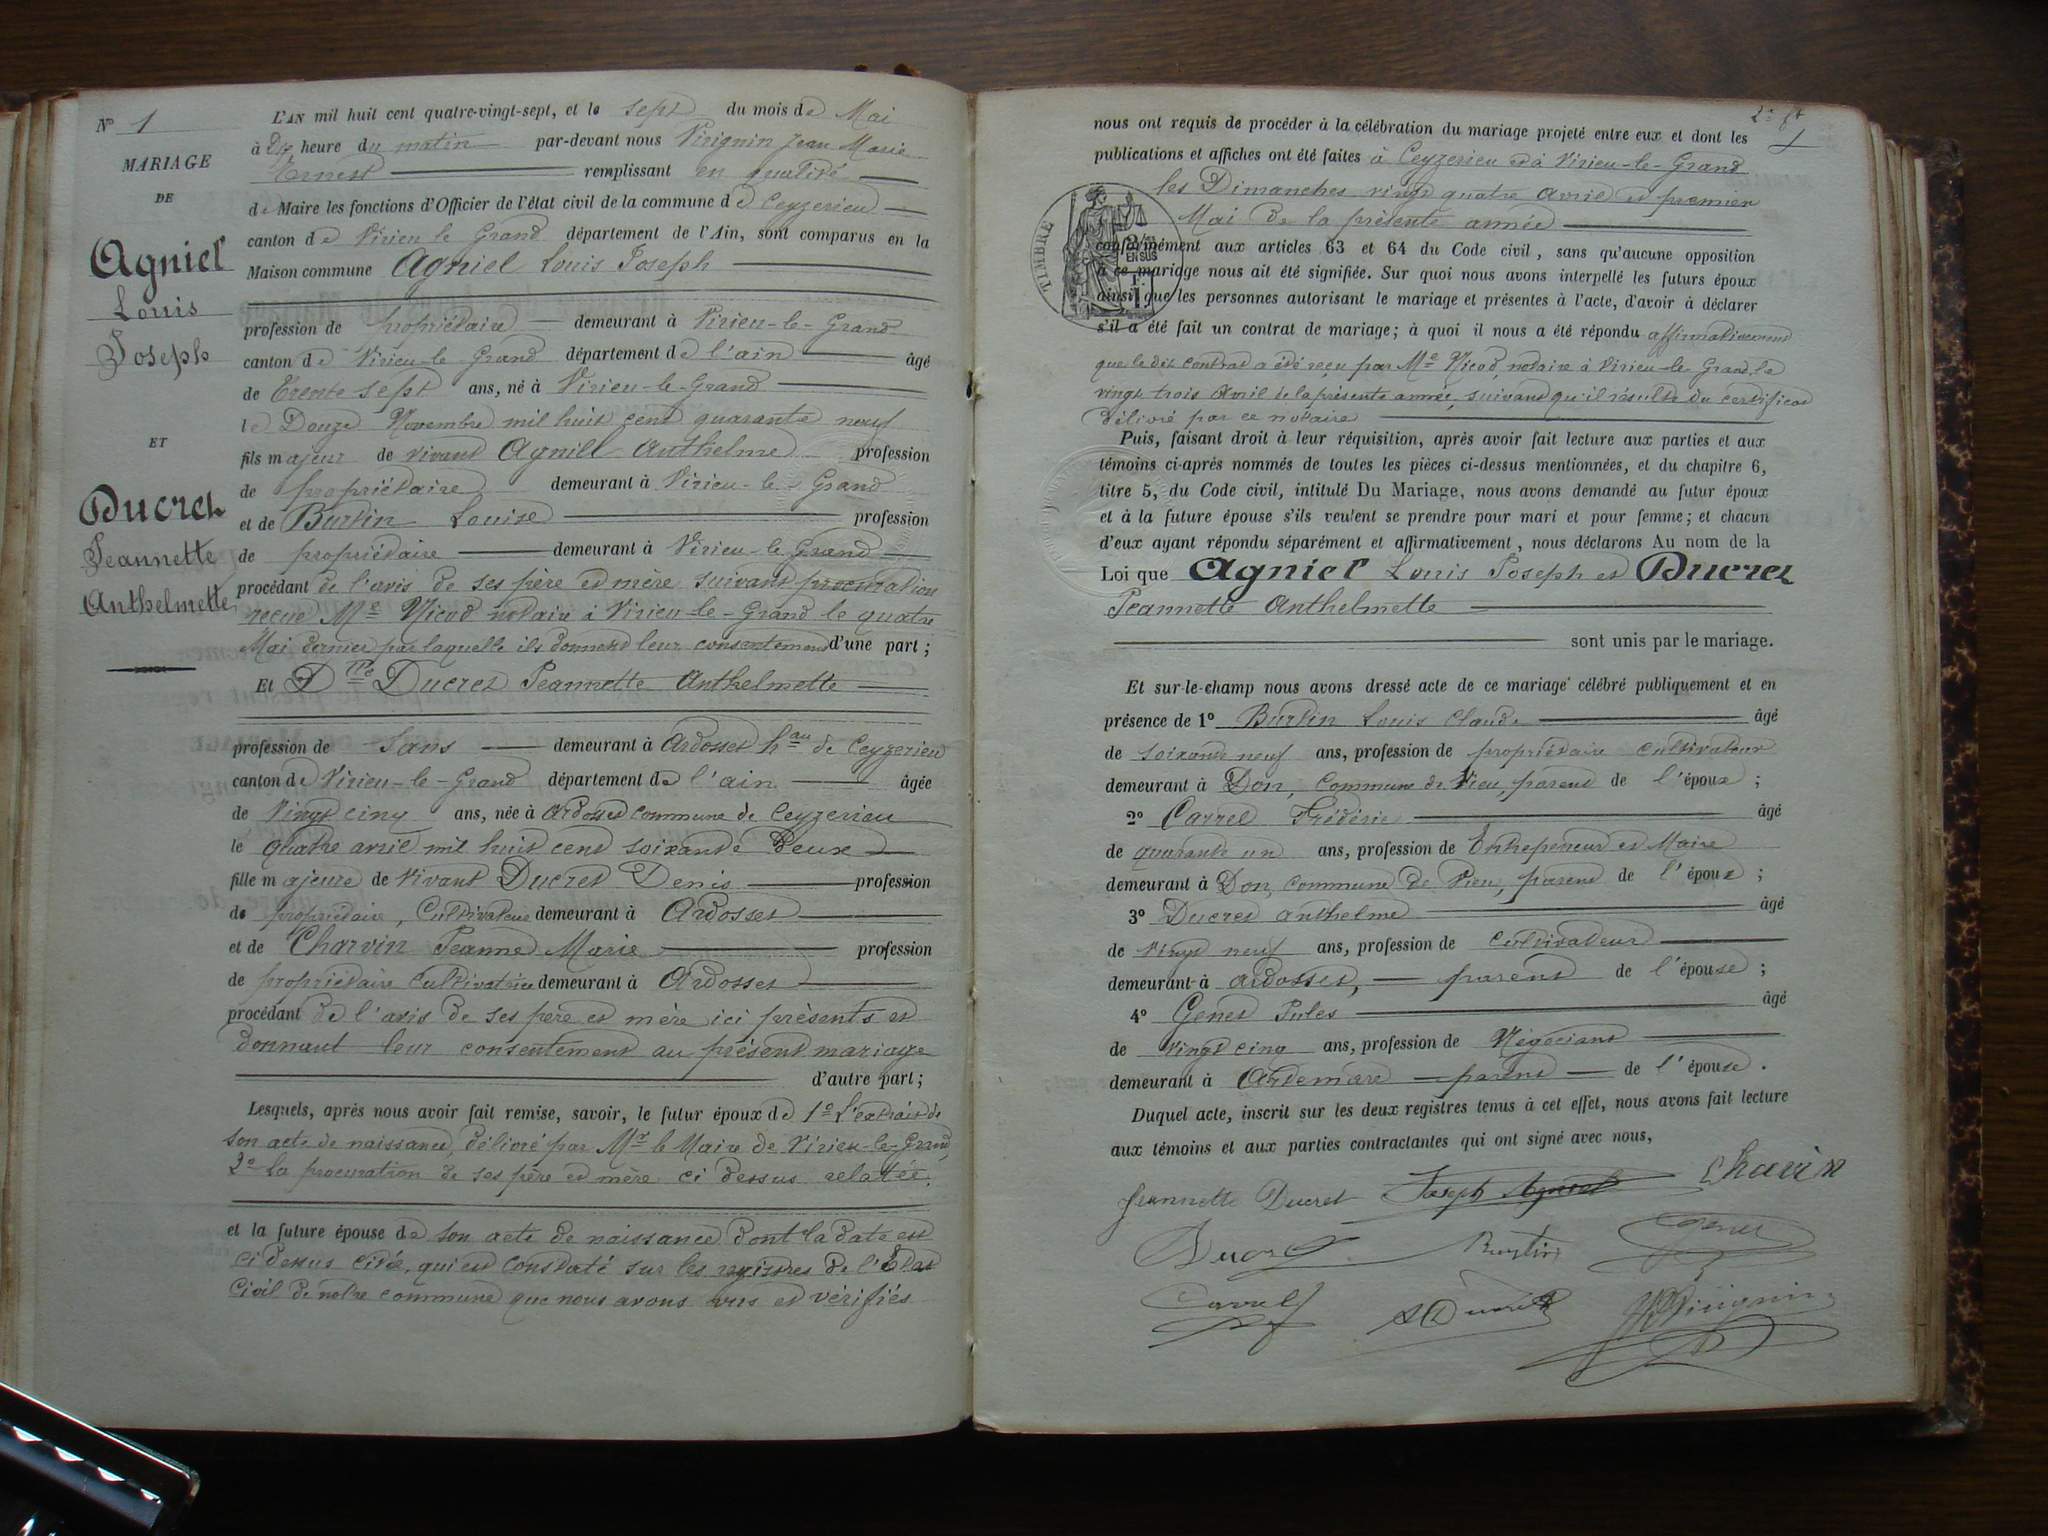 N° 1
MARIAGE
DE
Agniel
Louis
Joseph
ET
Ducret
Jeannette
Anthelmette
L'AN mil huit cent quatre-vingt-sept, et le sept du mois de Mai
à Dix heure du matin par-devant nous Virignin Jean Marie
Ernest remplissant en qualité
de Maire les fonctions d'Officier de l'état civil de la commune de Ceyzerieu
canton de Virieu le Grand département de l'Ain, sont comparus en la
Maison commune Agniel Louis Joseph
profession de propriétaire demeurant à Virieu-le-Grand
canton de Virieu-le-Grand département de l'ain âgé
de Trente sept ans, né à Virieu-le-Grand
le Douze Novembre mil huit cent quarante neuf
fils majeur de vivant Agniel Anthelme profession
de propriétaire demeurant à Virieu-le-Grand
et de Burtin Louise profession
de propriétaire demeurant à Virieu-le-Grand
procédant de l'avis de ses père et mère suivant procuration
recue Me Nicod notaire à Virieu-le-Grand le quatre
Mai dernier par laquelle ils donnent leur consentement d'une part ;
Et Dlle Ducret Jeannette Anthelmette
profession de sans demeurant à Ardosset hau de Ceyzerieu
canton de Virieu-le-Grand département de l'ain âgée
de Vingt cinq ans, née à Ardosset commune de Ceyzerieu
le quatre avril mil huit cent soixante deux
fille majeure de vivant Ducret Denis profession
de propriétaire, Cultivateur demeurant à Ardosset
et de Charvin Jeanne Marie profession
de propriétaire Cultivatrice demeurant à Ardosset
procédant de l'avis de ses père et mère ici présents et
donnant leur consentement au présent mariage
d'autre part ;
Lesquels, après nous avoir fait remise, savoir, le futur époux de 1° l'extrait de
son acte de naissance, délivré par Mr le Maire de Virieu-le-Grand,
2° la procuration de ses père et mère ci dessus relatée.
et la future épouse de son acte de naissance dont la date est
ci dessus citée, qui est constaté sur les registres de l'Etat
Civil de notre commune que nous avons vus et vérifiés
nous ont requis de procéder à la célébration du mariage projeté entre eux et dont les
publications et affiches ont été faites à Ceyzerieu et à Virieu-le-Grand
les Dimanches vingt quatre avril et premier
Mai de la présente année
TIMBRE
2/10
EN SUS
1F.
conformément aux articles 63 et 64 du Code civil, sans qu'aucune opposition
à ce mariage nous ait été signifiée. Sur quoi nous avons interpellé les futurs époux
ainsi que les personnes autorisant le mariage et présentes à l'acte, d'avoir à déclarer
s'il a été fait un contrat de mariage ; à quoi il nous a été répondu affirmativement
que le dit contrat a été reçu par Me Nicod, notaire à Virieu-le Grand, le
vingt trois Avril de la présente année, suivant qu'il résulte du certificat
délivré par ce notaire
Puis, faisant droit à leur réquisition, après avoir fait lecture aux parties et aux
témoins ci-après nommés de toutes les pièces ci-dessus mentionnées, et du chapitre 6,
titre 5, du Code civil, intitulé Du Mariage, nous avons demandé au futur époux
et à la future épouse s'ils veulent se prendre pour mari et pour femme ; et chacun
d'eux ayant répondu séparément et affirmativement, nous déclarons Au nom de la
Loi que Agniel Louis Joseph et Ducret
Jeannette Anthelmette
sont unis par le mariage.
Et sur-le-champ nous avons dressé acte de ce mariage célébré publiquement et en
présence de 1° Burtin Louis Claude âgé
de soixante neuf ans, profession de propriétaire cultivateur
demeurant à Don, Commune de Vieu, parent de l'époux ;
2° Carrel Frédéric âgé
de quarante un ans, profession de Entrepreneur et Maire
demeurant à Don, commune de Vieu, parent de l'époux ;
3° Ducret anthelme âgé
de vingt neuf ans, profession de Cultivateur
demeurant à ardosset, parent de l'épouse ;
4° Genet Jules âgé
de vingt cinq ans, profession de Négociant
demeurant à Artemare parent de l'épouse.
Duquel acte, inscrit sur les deux registres tenus à cet effet, nous avons fait lecture
aux témoins et aux parties contractantes qui ont signé avec nous,
Jeannette Ducret Joseph Agniel Chavin
Ducret Burtin Genet
Carrel Ducret Virignin